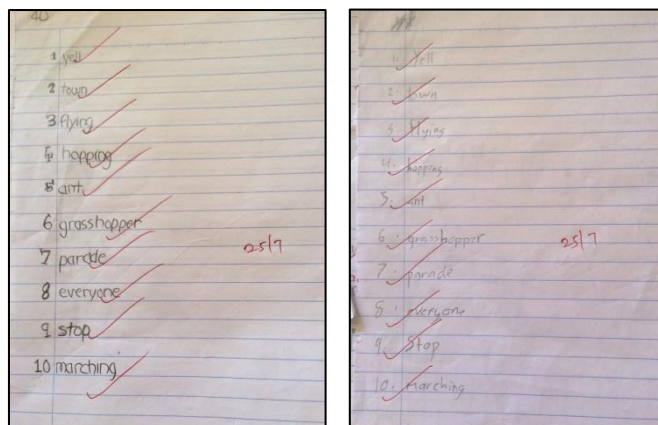 40
1 yell
2 town
3 flying
4 hopping
5 ant
6 grasshopper
25/7
7 parade
8 everyone
9 stop
10 marching
1. Yell
2. town
3. flying
4. hopping
5. ant
6. grasshopper
25/7
7. parade
8. everyone
9. Stop
10. Marching